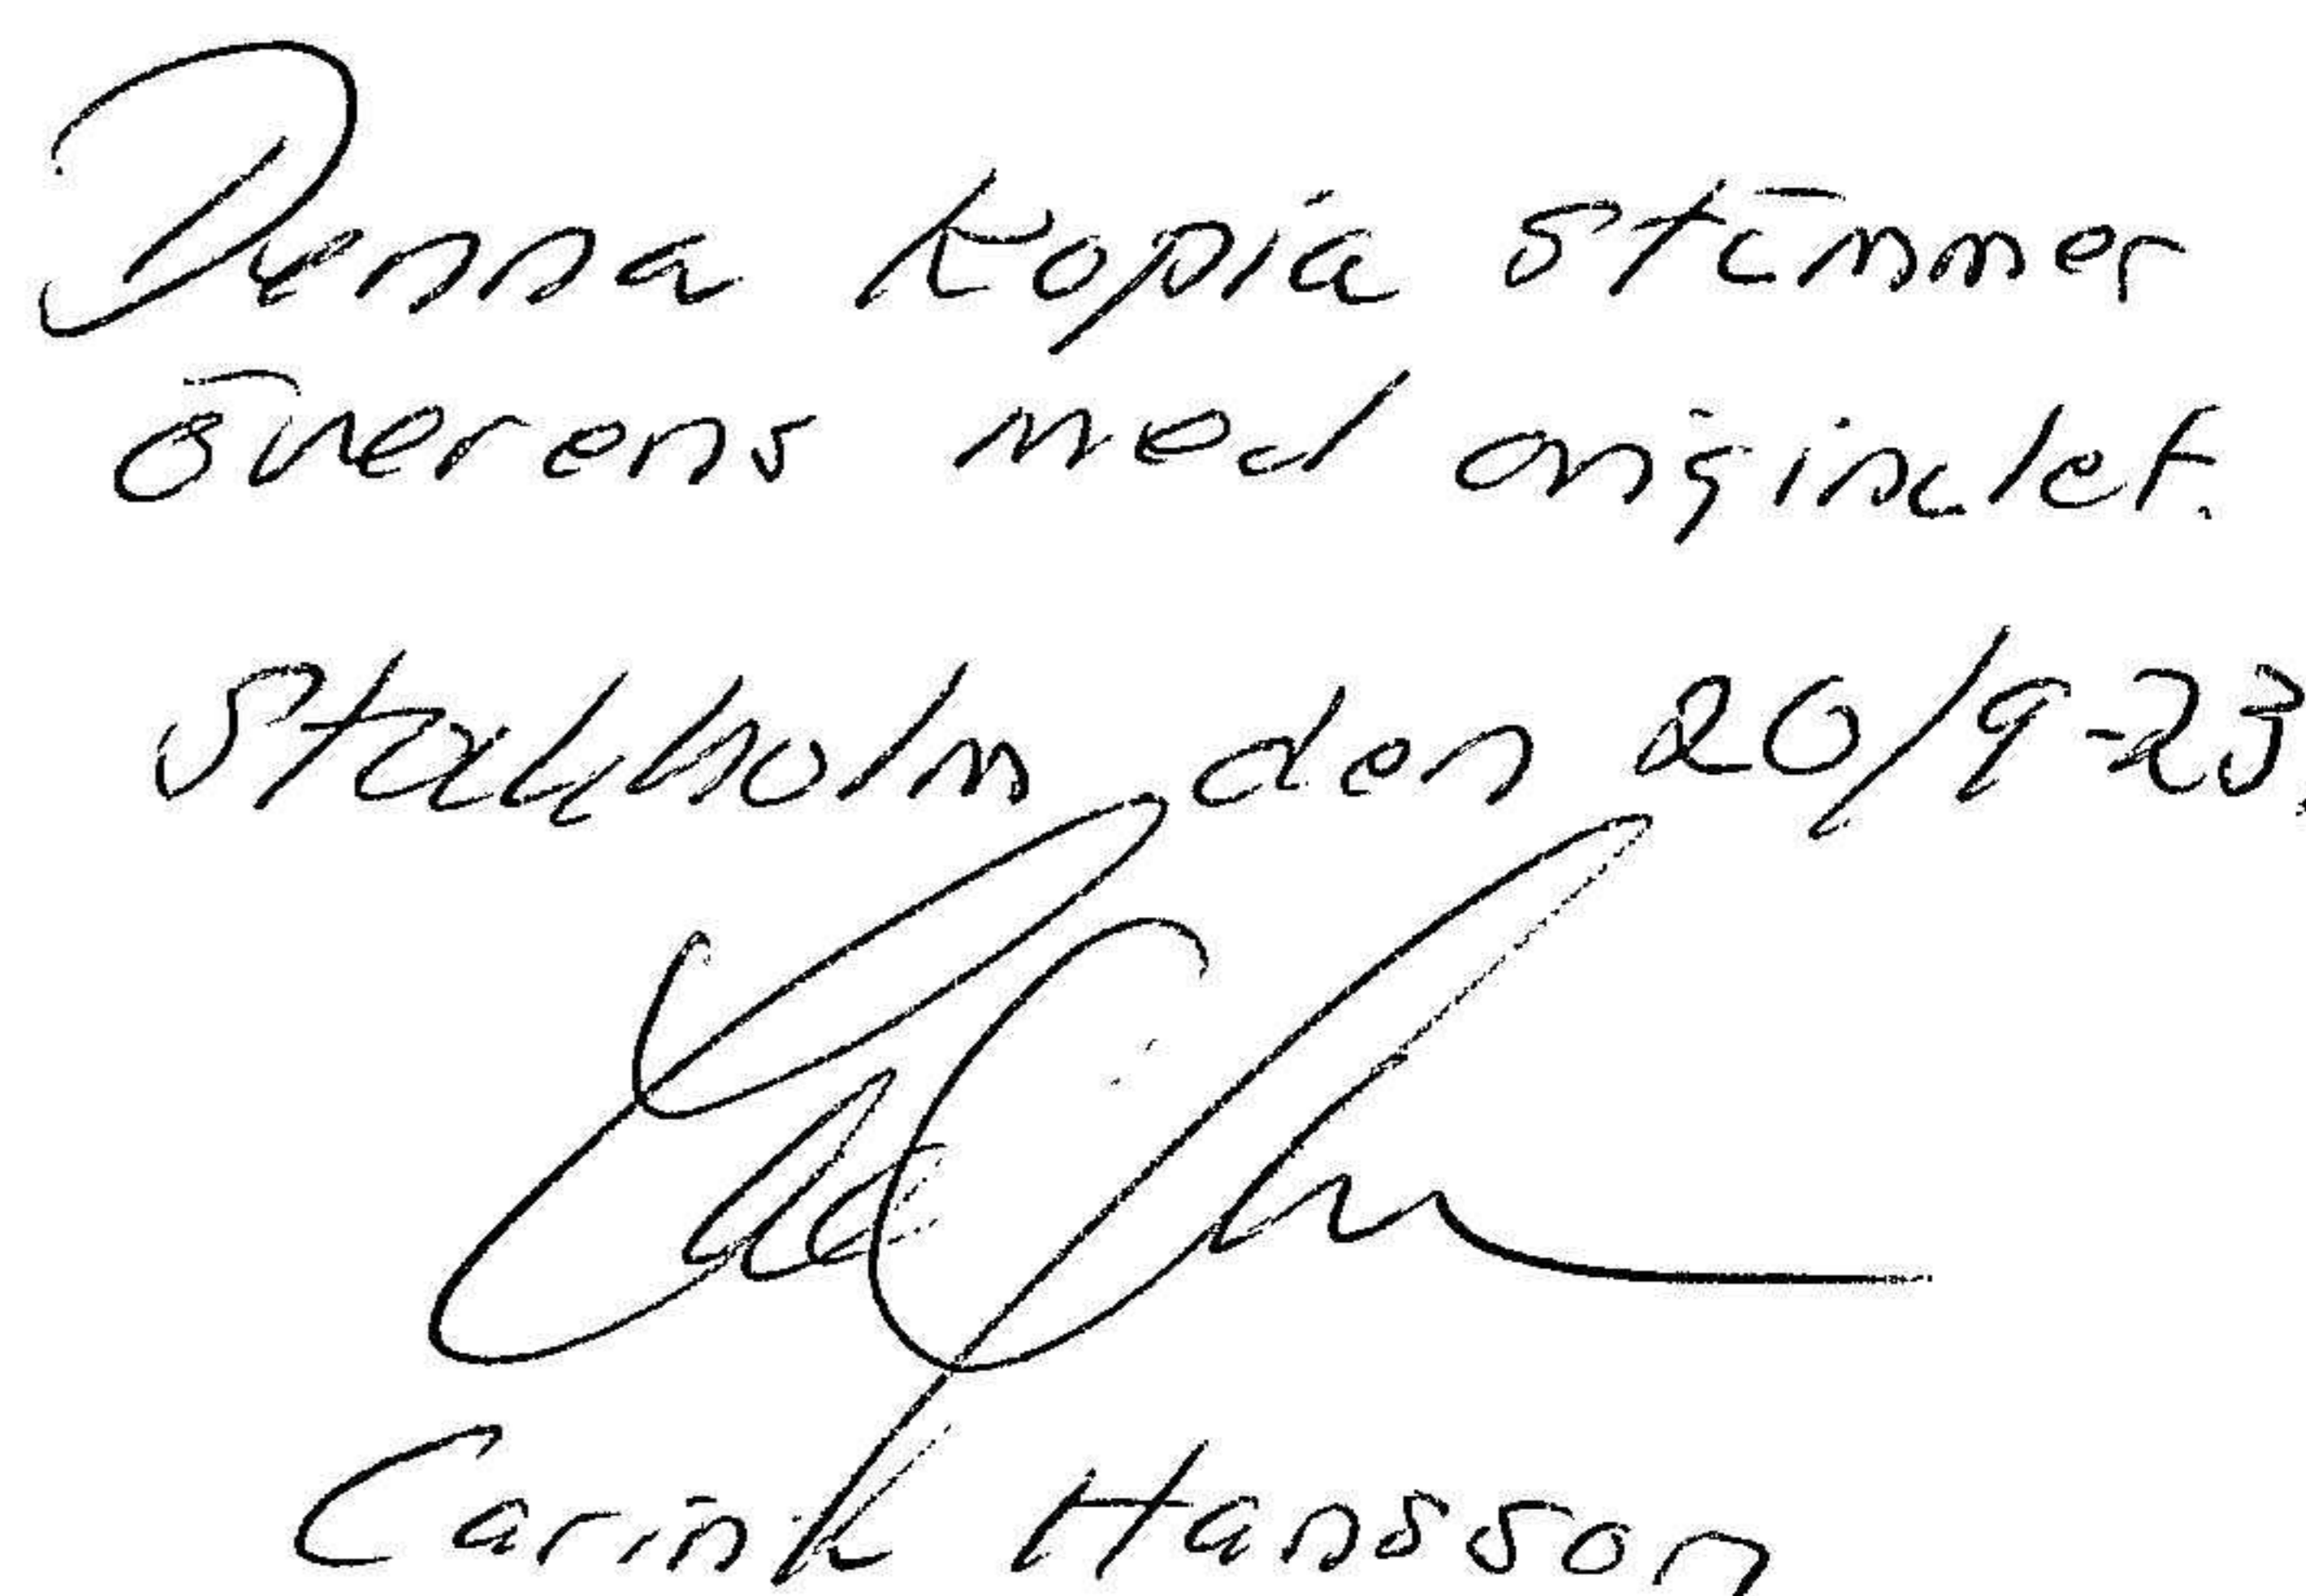 Denna kopia stämmer
överens med originalet.
Stockholm den 20/9-23.
Hansson